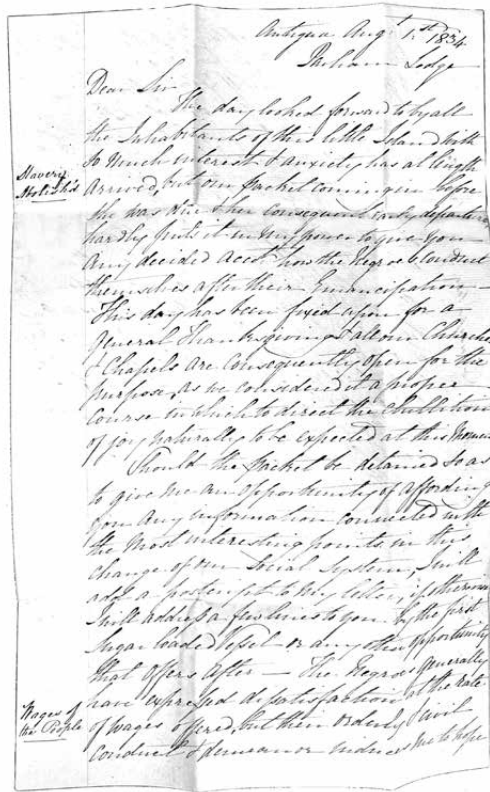 Antigua Augt 1st 1834
Parham Lodge
Dear Sir
The day looked forward to by all
the Inhabitants of this little Island with
Slavery
Abolish'd
so much interest & anxiety has at length
arrived, but our packet coming in before
she was due & her consequent early departure
hardly puts it in my power to give you
any decided acct how the Negroes conduct
themselves after their Emancipation —
This day has been fixed upon for a
General Thanksgiving & all our Churches
& Chapels are consequently open for the
purpose, as we considered it a proper
course in which to direct the ebullition
of joy naturally to be expected at this moment
Should the packet be detained so as
to give me an opportunity of affording
you any information connected with
the most interesting points in this
change of our Social System, I will
add a postscript to my letter, if otherwise
I will address a few lines to you by the first
Sugar loaded Vessel or any other opportunity
that offers after — The Negroes generally
Wages of
the People
have expressed dissatisfaction at the rate
of wages offered, but their orderly & civil
conduct & demeanor induces me to hope